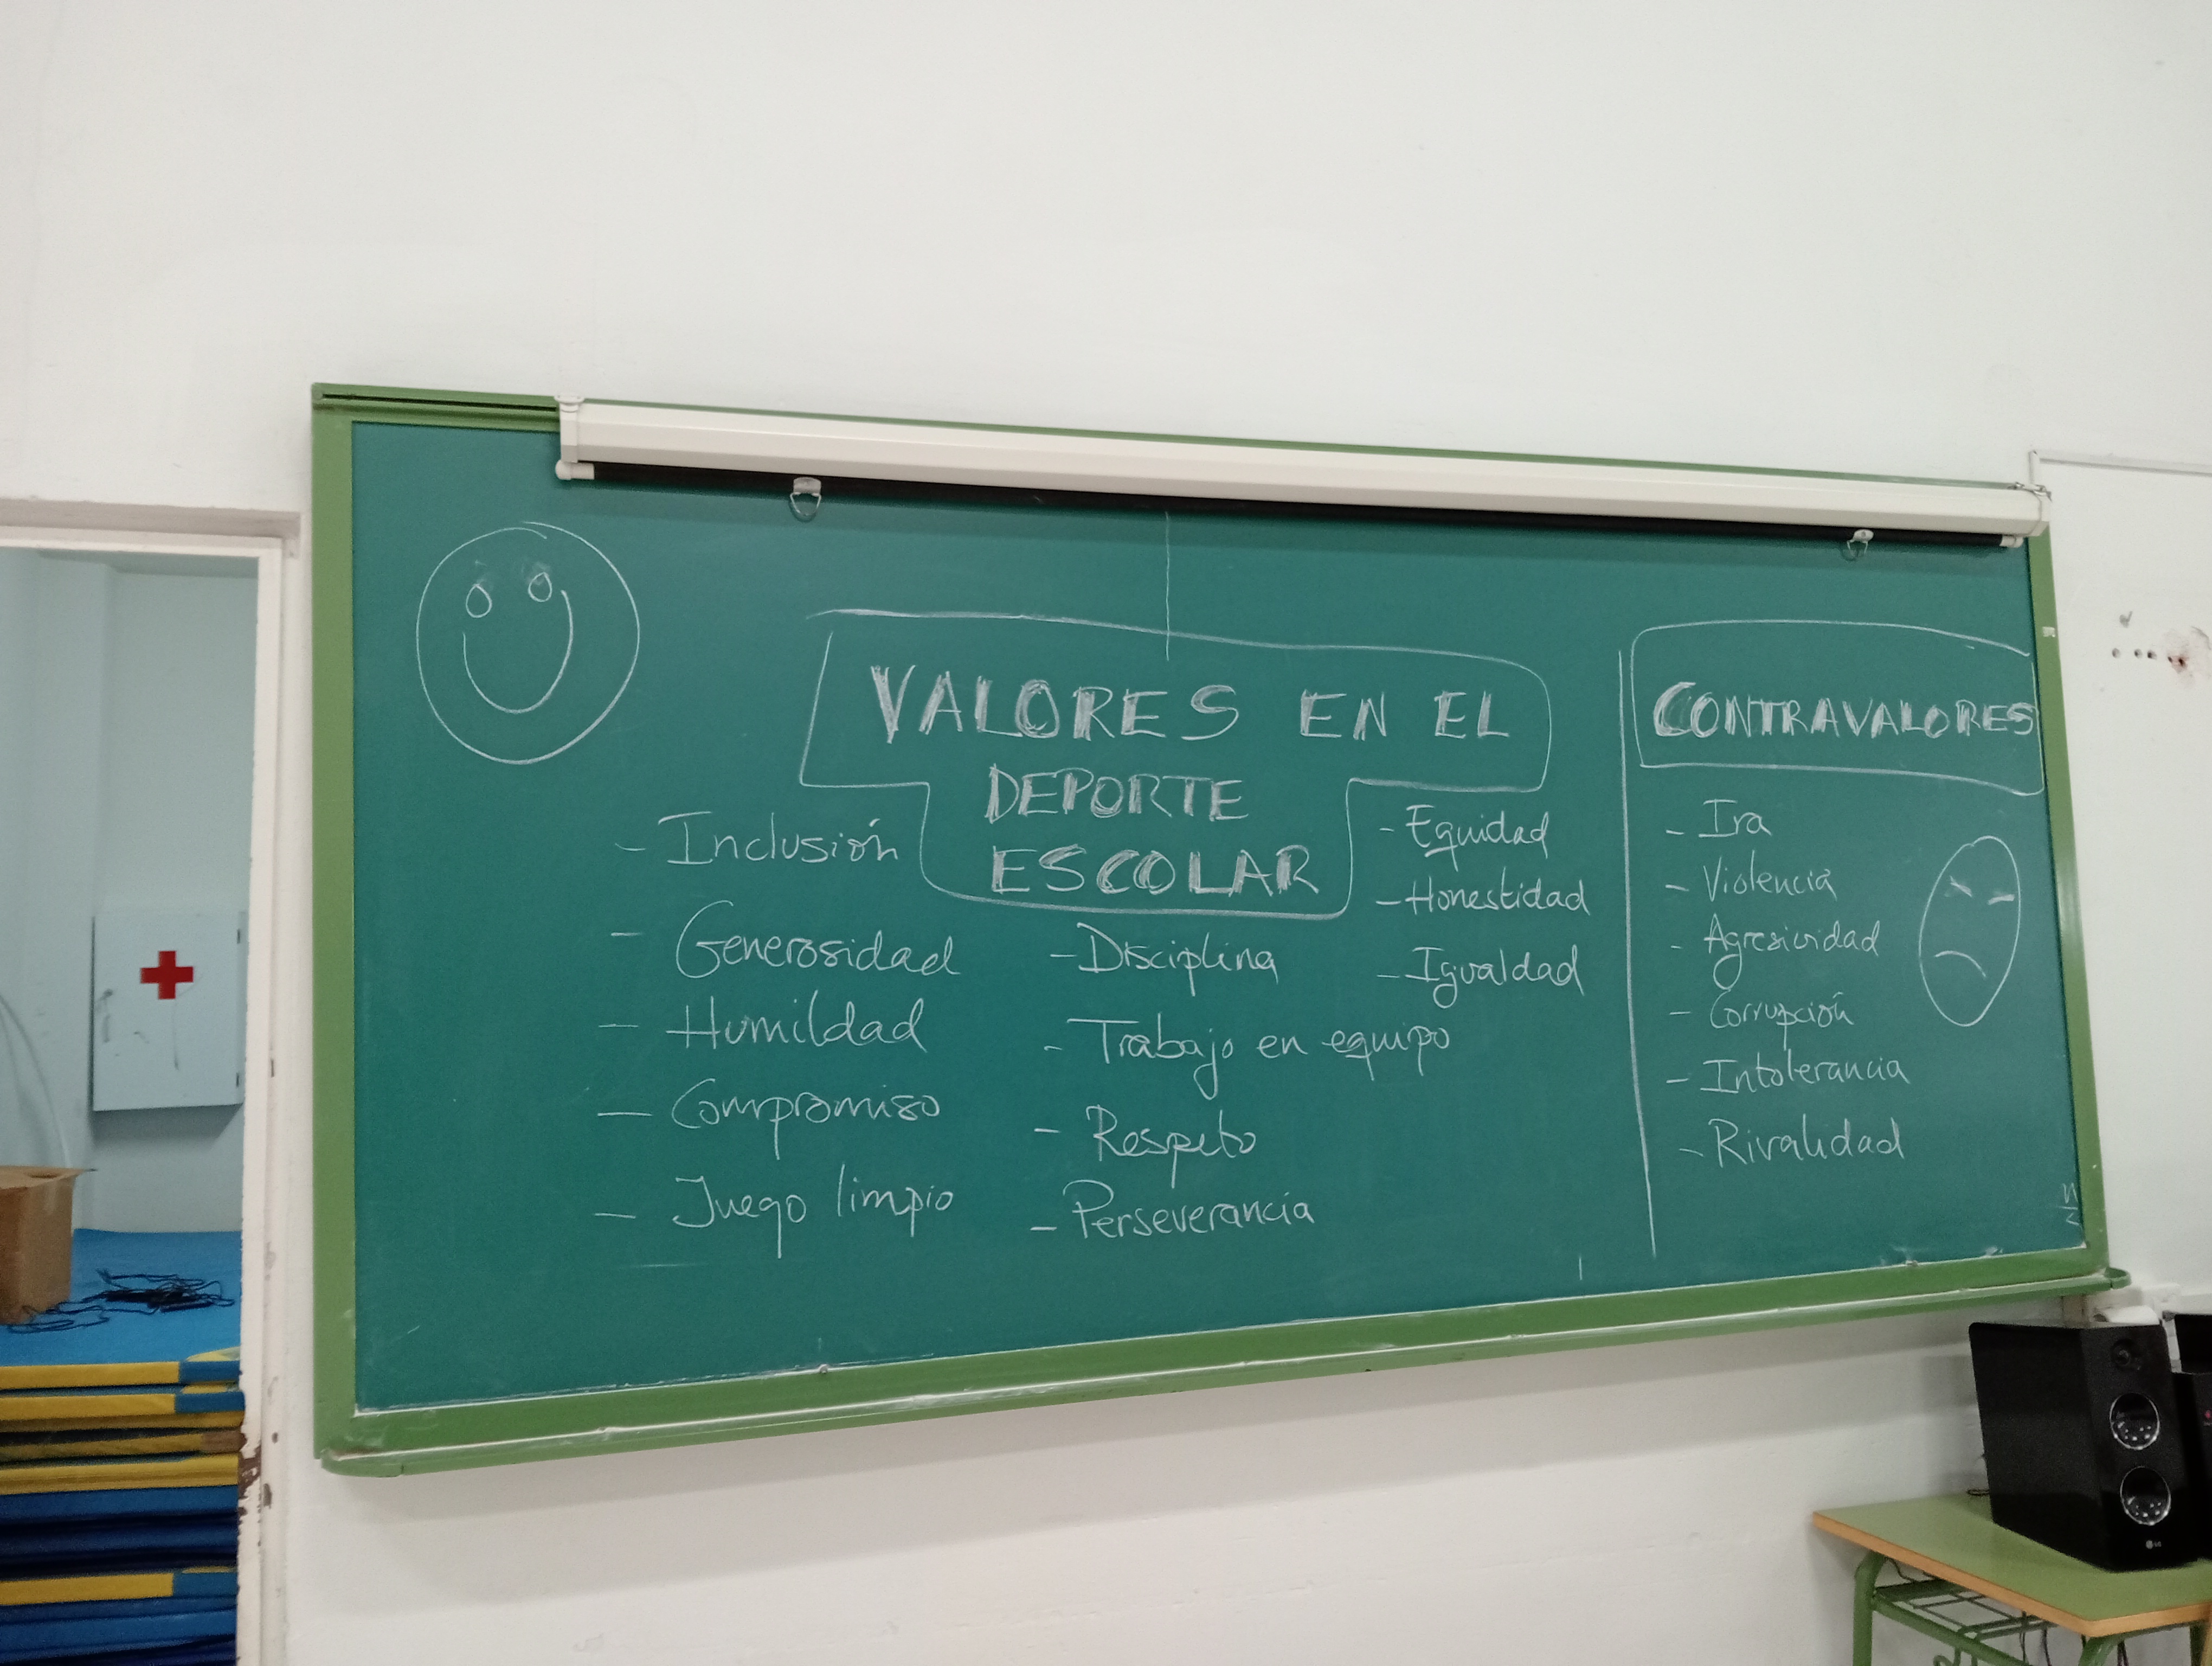 VALORES EN EL
DEPORTE
ESCOLAR
- Inclusión
- Generosidad
- Humildad
- Compromiso
- Juego limpio
- Disciplina
- Trabajo en equipo
- Respeto
- Perseverancia
- Equidad
- Honestidad
- Igualdad
CONTRAVALORES
- Ira
- Violencia
- Agresividad
- Corrupción
- Intolerancia
- Rivalidad
LG